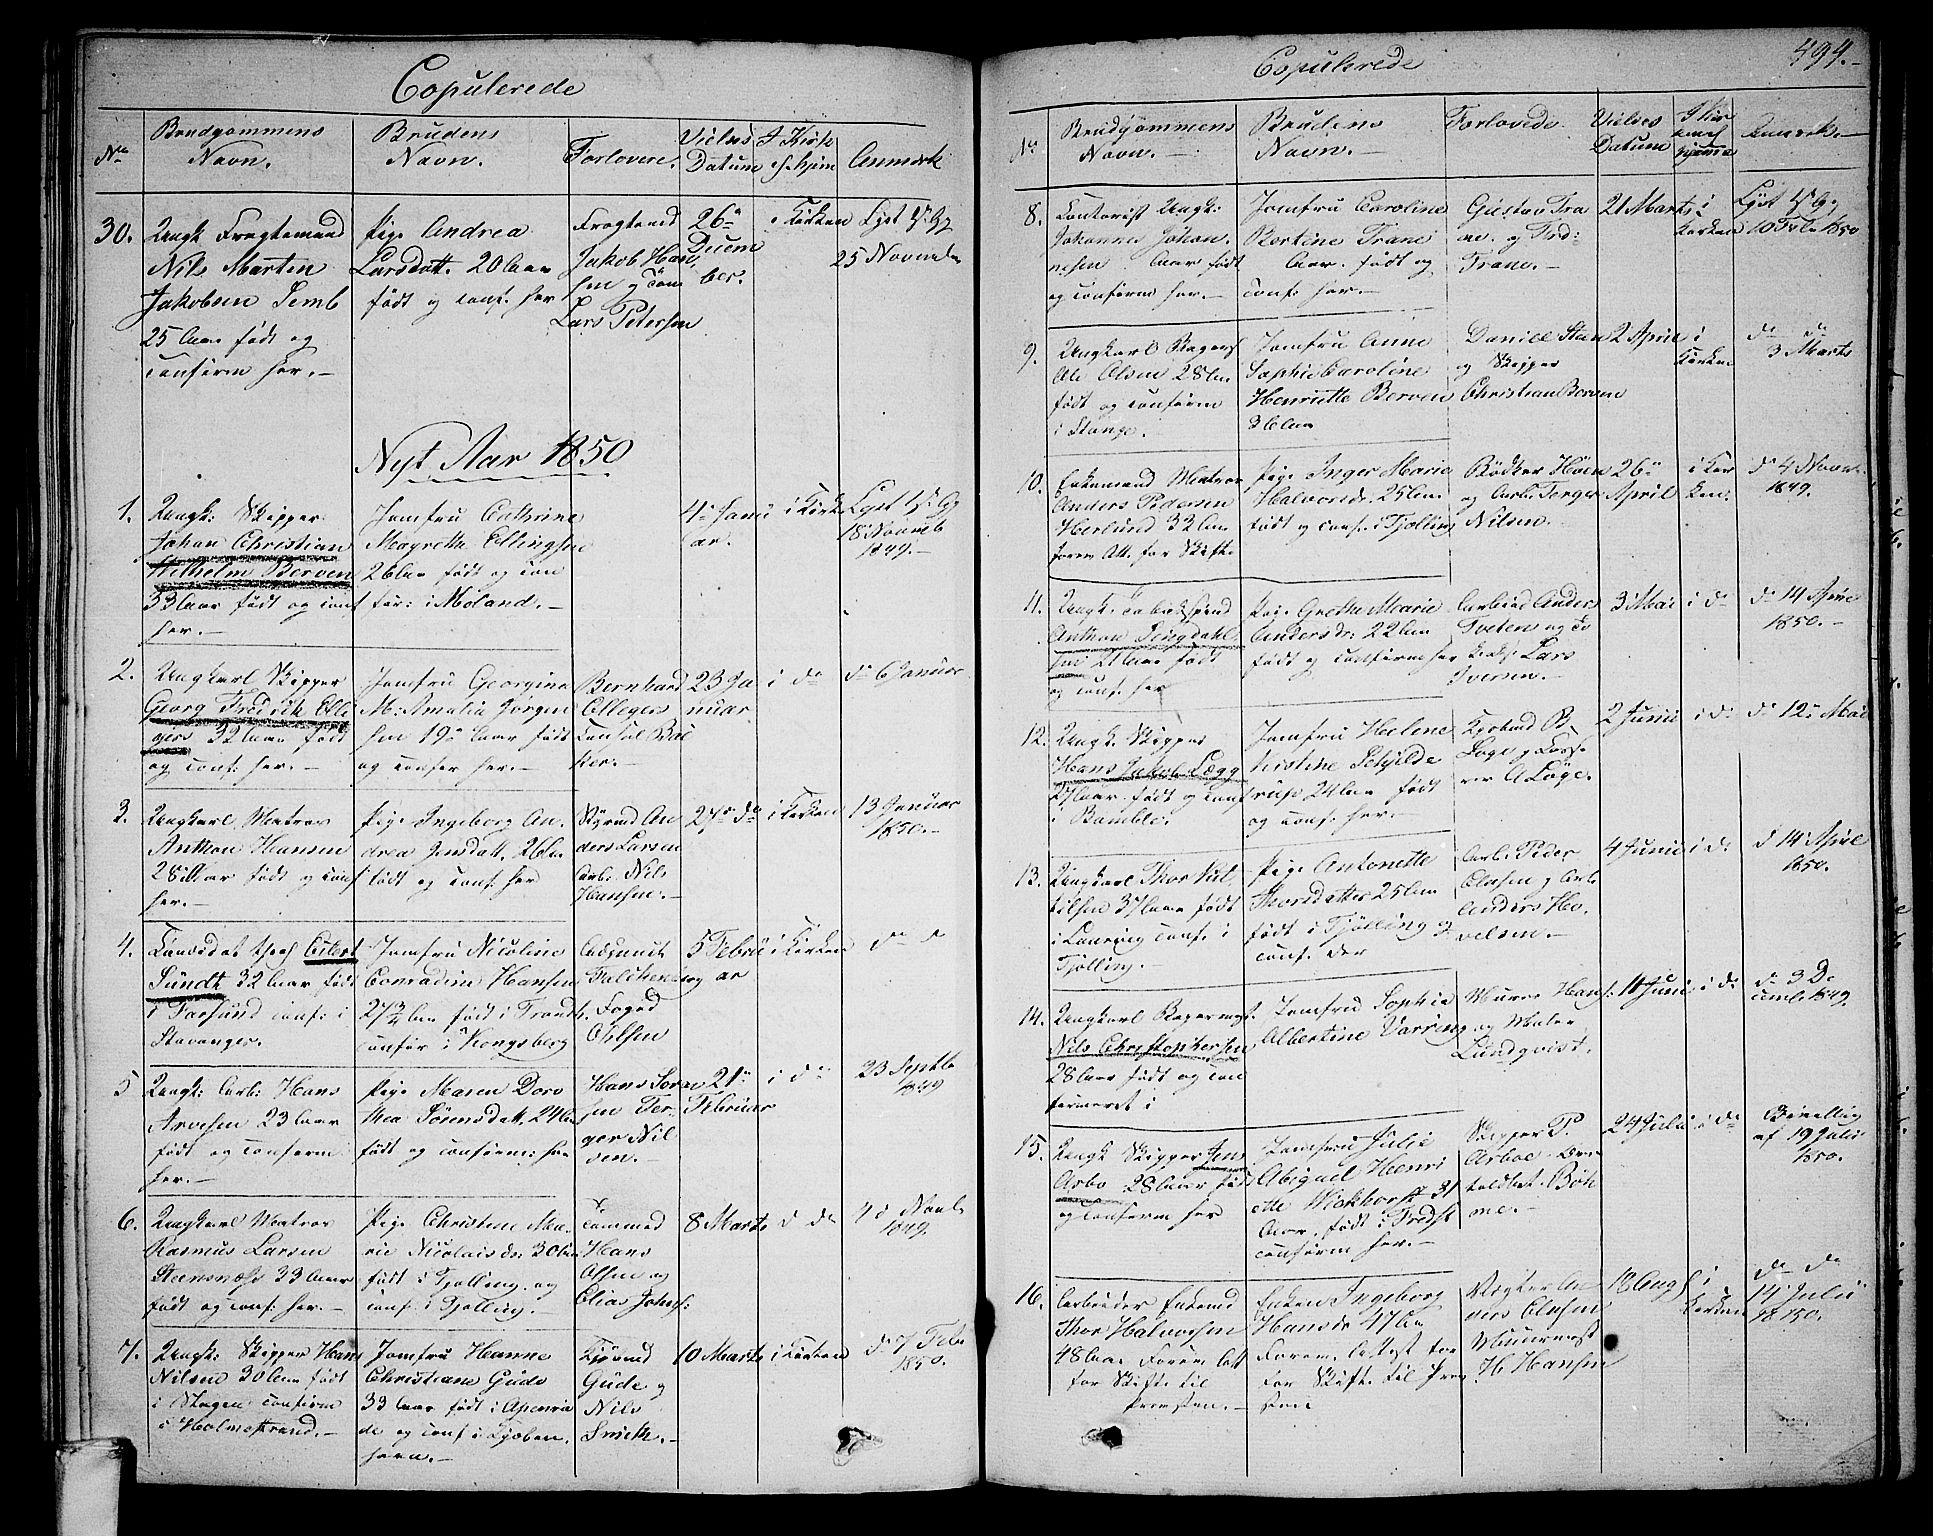 Copulerede
No
Brudgommens
Navn.
Brudens
Navn.
Forlovere.
Vielses
Datum
I Kirk
Anmærk
30.
Ungk Fragtemand
Nils Marten
Jakobsen Semb
25 Aar født og
Confirm her.-
Pige Andrea
Larsdatt. 20 Aar
født og conf. her
Fragtmd
Jakob Han
sen og
Lars Petersen
26de
Decem
ber.
i Kirken
Lyst
25 Novmbr
Nyt Aar 1850
1.
Ungk: Skipper
Johan Christian
Wilhelm Berven
33 Aar født og conf
her.-
Jomfru Cathrine
Magrethe Ellingsen
26 Aar født og con
for: i Moland.-
4de Janu
ar.
i Kirke
Lyst
18 Novmb
1849.-
2.
Ungkarl Skipper
Georg Fredrik Elli
gers 32 Aar født
og conf: her.-
Jomfru Georgine
M: Amalia Jørgen
sen 19de Aar født
og confir her.-
Bernhard
Elleger
Consul Bæ
ker.-
23 Ja
nuar
i do
do 6 Januar
3.
Ungkarl Matros
Anthon Hansen
28 Aar født og conf
her.-
Pige Ingeborg An
drea Jensdatt. 26 Aar
født og conf: her
Styrmd An
ders Larsen
Arb. Nils
Hansen.-
27de do
i Kirken
13 Januar
1850.-
4.
Candidat theol Eilert
Sundt 32 Aar født
i Farsund conf: i
Stavanger.
Jomfru Nicoline
Conradine Hansen
27 3/4 Aar født i Trondh.
confir i Kongsberg
Adjunct
Falchenberg
Foged
Ohlsen
5 Febru
ar
i Kirken
do d
5
Ungk: Arb: Hans
Arvesen 23 Aar
født og confirm
her.-
Pige Maren Doro
thea Sørensdatt. 24 Aar
født og confirm: her
Hans Søren
sen Tor-
ger Nil
sen.
21de
Februar
i do
23 Septb
1849
6.
Ungkarl Matros
Rasmus Larsen
Steensnæs 33 Aar
født og conf: her.-
Pige Christine Ma-
rie Nicolaisdr: 30 Aar
født i Tjølling og
conf. i Tjølling.-
Tømmrd
Hans
Olsen og
Elias Johns:
8 Marts
d do
4de Novb
1849.
7.
Ungk: Skipper Hans
Nilsen 30 Aar født
i Skagen confirm
i Holmestrand.-
Jomfru Hanne
Christiane Gude
33 Aar født i Apenra
de og conf. i Kjøben
havn.-
Kjøbmd
Gude og
Nils
Smith.-
10 Marts
i Kirken
do 7 Feb
1850.
Copulerede
494.-
No
Brudgommens
Navn.-
Brudens
Navn.-
Forlovede.
Vielses
Datum
Anmærk.-
8.
Contorist Ungk:
Johannes Johan-
nesen Aar født
og confirm her.-
Jomfru Caroline
Bertine Trane
Aar. født og
conf: her.-
Gustav Tra
ne. og Frd:
Trane.-
21 Marts
i
Kirken
Lyst
10 Feb. 1850
9.
Ungkarl Bagers
Ole Olsen 28 Aar
født og confirm
i Stange.
Jomfru Anne
Sophie Caroline
Henriette Berven
36 Aar
Daniel Stan
og Skipper
Christian Berven
2 April
i
Kirken
do do
3 Marts
10.
Enkemand Matros
Anders Pedersen
Herlund 33 Aar
forev. Att. for Skifte
Pige Inger Marie
Halvorsdr: 25 Aar
født og conf. i Tjølling
Bødker Høen
og Arb: Torger
Nilsen.-
26de
April
i Kir
ken.
do 4 Novbr.
1849.
11.
Ungk.
Anthon Bengdahl
sen 21 Aar født
og conf: her
Pige Grethe Marie
Andersdr: 22 Aar
født og confirm her
Arbmd Anders
Tveten og
Lars
Iversen.-
3 Mai
i do
do 14 April
1850.-
12.
Ungk. Skipper
Hans Jakob Lægg
27 Aar født og conf
i Bamble.
Jomfru Helene
Kistine Schjilde
rup 24 Aar født
og conf. her.-
Kjøbmd B.
Løge og
A Løge.
2 Junii
i do
do 12te Mai
13.
Ungkarl Thor Kul
tilsen 37 Aar født
i Laurvig conf. i
Tjølling.
Pige Antonette
Thorsdatter 25 Aar
født i Tjølling og
conf. der
Arb. Peder
Olassen og Arb
Anders Ho
velsen.-
4 Junii
i do
d 14 April
1850.
14.
Ungkarl Bagermst
Nils Christophersen
28 Aar født og con
firmeret i
Jomfru Sophie
Albertine Varring
Murer Hans:
og Maler
Lundqvist.
11 Juni
i do
do 3 De
cemb 1849.
15.
Ungk Skipper Jens
Arbo 28 Aar født
og confirm her
Jomfru Julie
Abigael Henri
ette Wiekhorst 31
Aar. født i Fredst
confirm her.-
Skipper P.
Arboe. Over
toldbet. Böh
me.-
24 Julii
i do
Bevilling
af 19 Julii
1850.
16.
Arbeider Enkemd
Thor Halvorsen
48 Aar Forev. Att
for Skifte til
Præsten.-
Enken Ingeborg
Hansdr 47 Aar
Forev. Attest for
for Skifte til Præ
sten
Vægter An
ders Olassen
Muurermst
H. Hansen
18 Aug
i
Kirken
do do
14 Julii
1850.